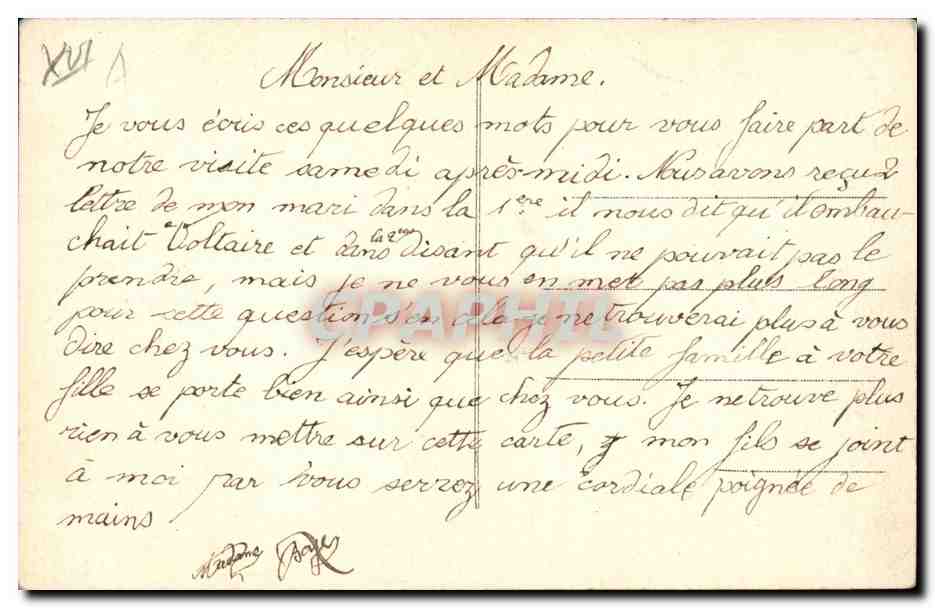 XVI
Monsieur et Madame.
Je vous écris ces quelques mots pour vous faire part de
notre visite samedi après-midi. Nous avons reçu 2
lettre de mon mari dans la 1ère il nous dit qu'il embau-
chait Voltaire et dans la 2ème disant qu'il ne pouvait pas le
prendre, mais je ne vous en met pas plus long
pour cette question s'en cela je ne trouverai plus à vous
dire chez vous. J'espère que la petite famille à votre
fille se porte bien ainsi que chez vous. Je ne trouve plus
rien à vous mettre sur cette carte, mon fils se joint
à moi par vous serrez une cordiale poignée de
mains
Madame
GRAPHIL